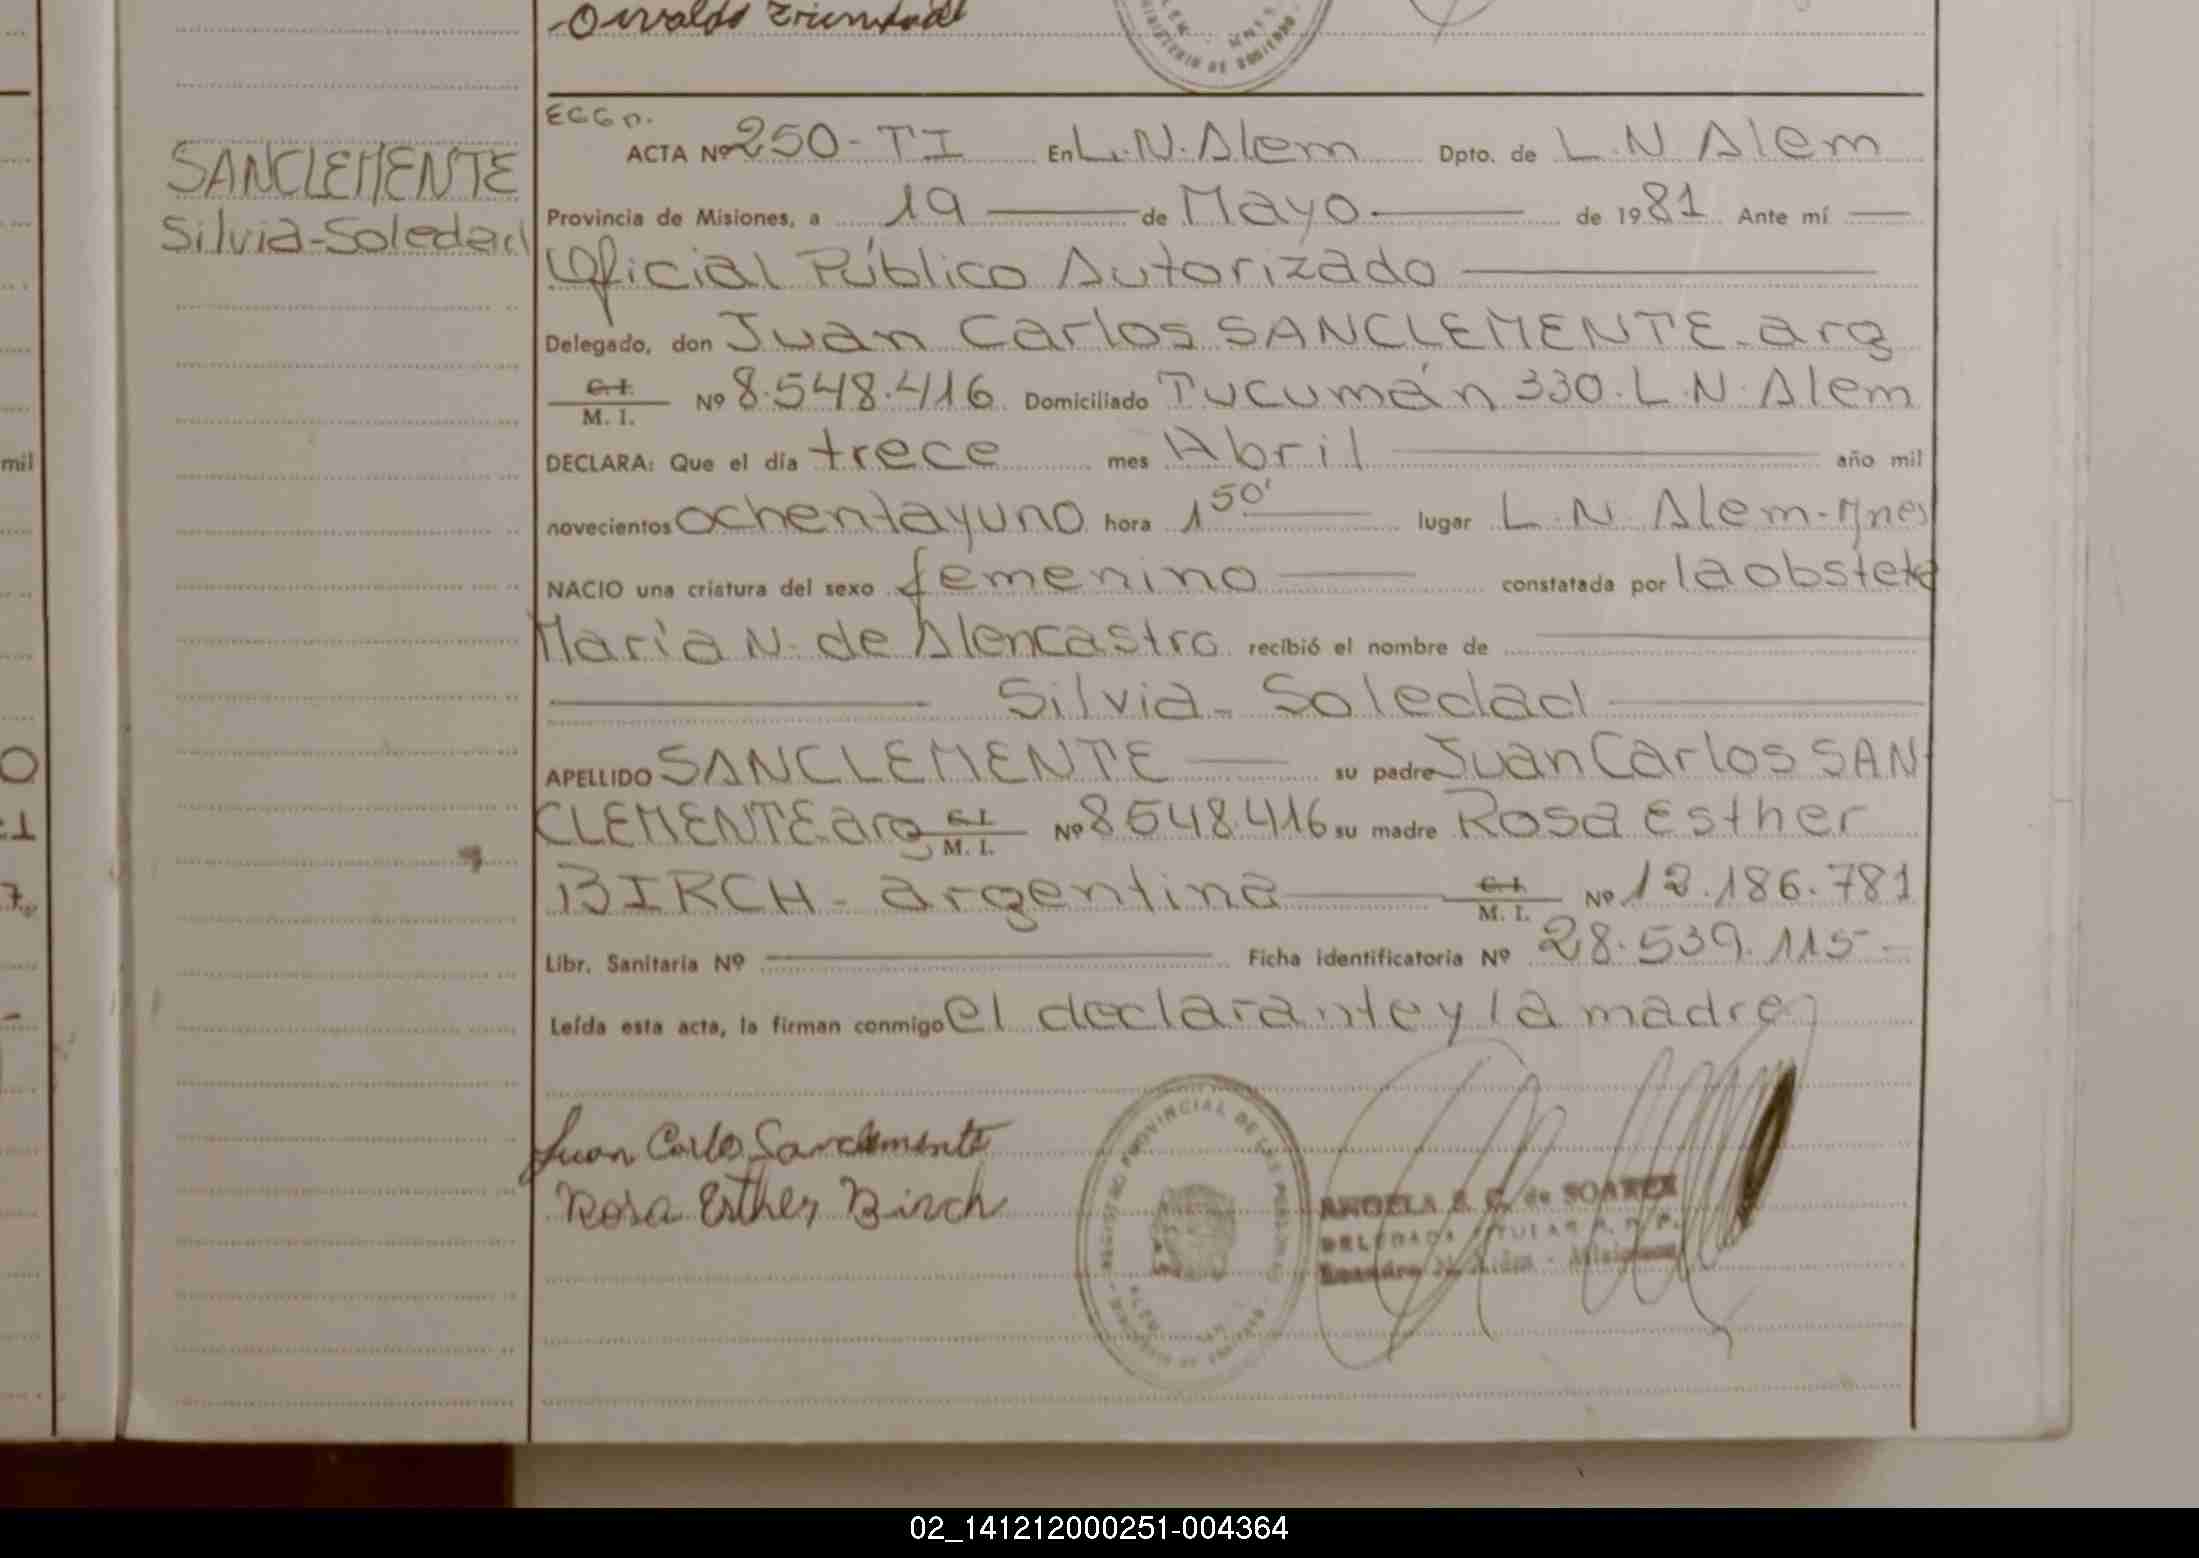 Osvaldo
MINISTERIO DE GOBIERNO
EGGo.
SANCLEMENTE
Silvia-Soledad
ACTA Nº 250-TI En L.N.Alem Dpto. de L.N Alem
Provincia de Misiones, a 19 de Mayo de 1981 Ante mí
Oficial Público Autorizado
Delegado, don Juan Carlos SANCLEMENTE-arg
C.I. M. I. Nº 8.548.416 Domiciliado Tucumán 330.L.N.Alem
mil
DECLARA: Que el día trece mes Abril año mil
novecientos ochentayuno hora 1 50' lugar L.N Alem-Mnes
NACIO una criatura del sexo femenino constatada por la obstetra
María N. de Alencastro recibió el nombre de
Silvia-Soledad
APELLIDO SANCLEMENTE su padre Juan Carlos SAN
CLEMENTE.arg C.I. M. I. Nº 8548.416 su madre Rosa Esther
BIRCH-argentina C.I. M. I. Nº 12.186.781
Libr. Sanitaria Nº Ficha identificatoria Nº 28.539.115-
Leída esta acta, la firman conmigo el declarante y la madre
Juan Carlos Sanclemente
Rosa Esther Birch
REGISTRO PROVINCIAL DE LAS PERSONAS
ALEM
MINISTERIO DE GOBIERNO
ANGELA S. C. de SOAREZ
DELEGADA TITULAR R. P. P.
Leandro N. Alem - Misiones
02_141212000251-004364